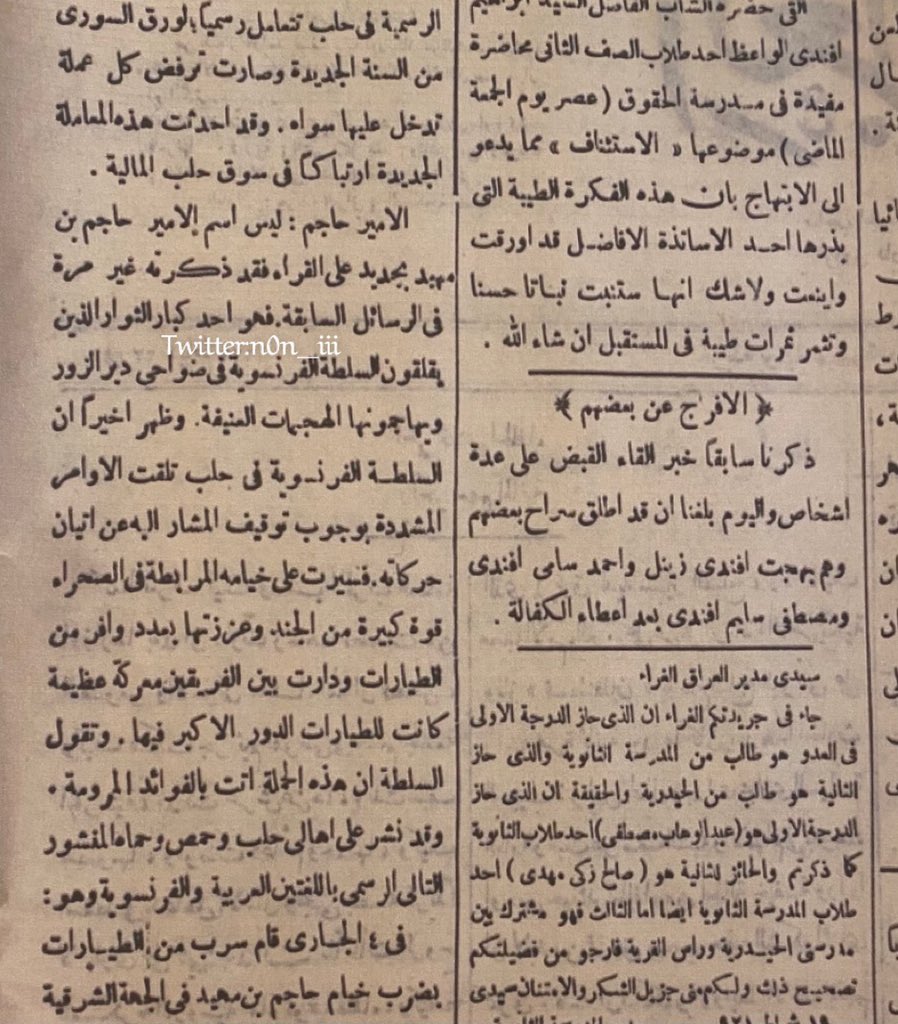 التى حضره الشاب الفاضل السيد ابراهيم
افندى الواعظ احد طلاب الصف الثانى محاضرة
مفيدة فى مدرسة الحقوق (عصر يوم الجمعة
الماضى) موضوعها « الاستئناف » مما يدعو
الى الابتهاج بان هذه الفكرة الطيبة التى
بذرها احد الاساتذة الافاضل قد اورقت
واينعت ولاشك انها ستنبت نباتا حسنا
وتثمر ثمرات طيبة فى المستقبل ان شاء الله .
﴿ الافراج عن بعضهم ﴾
ذكرنا سابقاً خبر القاء القبض على عدة
اشخاص واليوم بلغنا ان قد اطلق سراح بعضهم
وهم بهجت افندى زينل واحمد سامى افندى
ومصطفى سليم افندى بعد اعطاء الكفالة .
سيدى مدير العراق الغراء
جاء فى جريدتكم الغراء ان الذى حاز الدرجة الاولى
فى العدو هو طالب من المدرسة الثانوية والذى حاز
الثانية هو طالب من الحيدرية والحقيقة ان الذى حاز
الدرجة الاولى هو (عبد الوهاب مصطفى) احد طلاب الثانوية
كما ذكرتم والحائز للثانية هو (صالح زكى مهدى) احد
طلاب المدرسة الثانوية ايضا اما الثالث فهو مشترك بين
مدرستى الحيدرية وراس القرية فارجو من فضيلتكم
تصحيح ذلك ولكم منى جزيل الشكر والامتنان سيدى
الرسمية فى حلب تتعامل رسمياً بورق السورى
من السنة الجديدة وصارت ترفض كل عملة
تدخل عليها سواه . وقد احدثت هذه المعاملة
الجديدة ارتباكاً فى سوق حلب المالية .
الامير حاجم : ليس اسم الامير حاجم بن
مهيد بجديد على القراء فقد ذكرته غير مرة
فى الرسائل السابقة. فهو احد كبار الثوار الذين
يقلقون السلطة الفرنسوية فى ضواحى دير الزور
ويهاجمونها الهجمات العنيفة. وظهر اخيراً ان
السلطة الفرنسوية فى حلب تلقت الاوامر
المشددة بوجوب توقيف المشار اليه عن اتيان
حركاته. فسيرت على خيامه المرابطة فى الصحراء
قوة كبيرة من الجند وعززتها بعدد وافر من
الطيارات ودارت بين الفريقين معركة عظيمة
كانت للطيارات الدور الاكبر فيها . وتقول
السلطة ان هذه الحملة اتت بالفوائد المرومة .
وقد نشر على اهالى حلب وحمص وحماه المنشور
التالى الرسمى باللغتين العربية والفرنسوية وهو :
فى ٤ الجارى قام سرب من الطيارات
بضرب خيام حاجم بن مهيد فى الجهة الشرقية
Twitter:n0n__iii